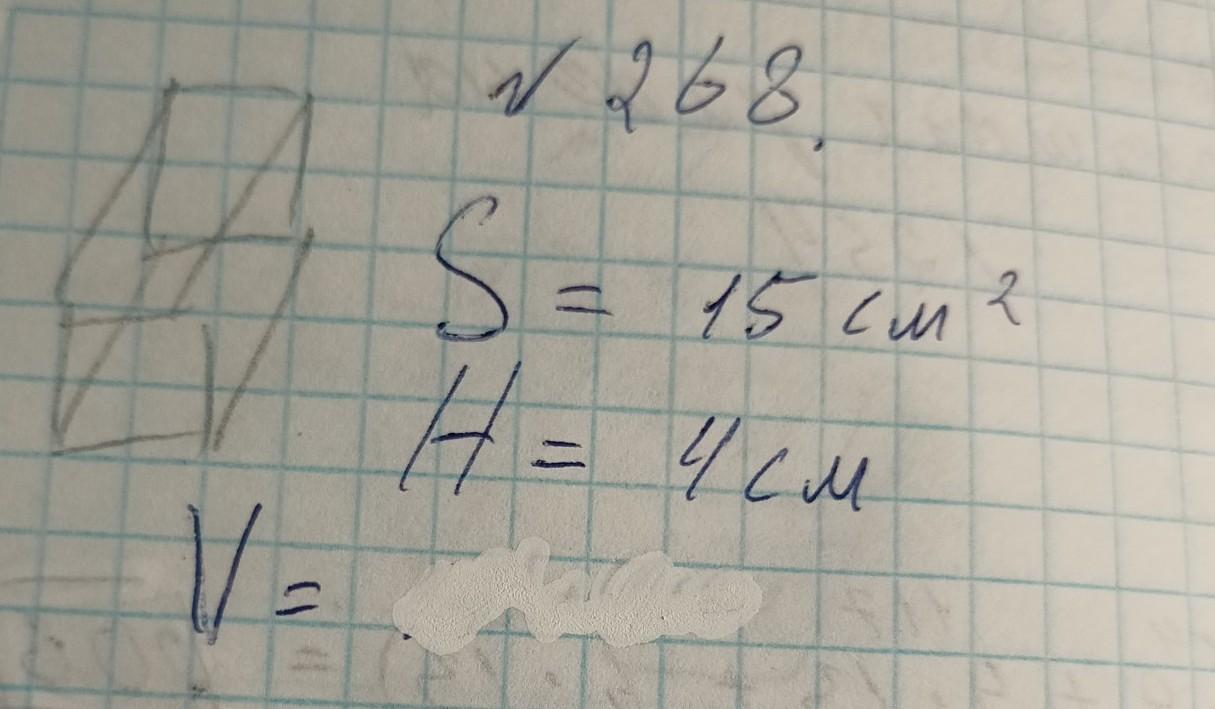 № 268.
S = 15 см²
H = 4 см
V =